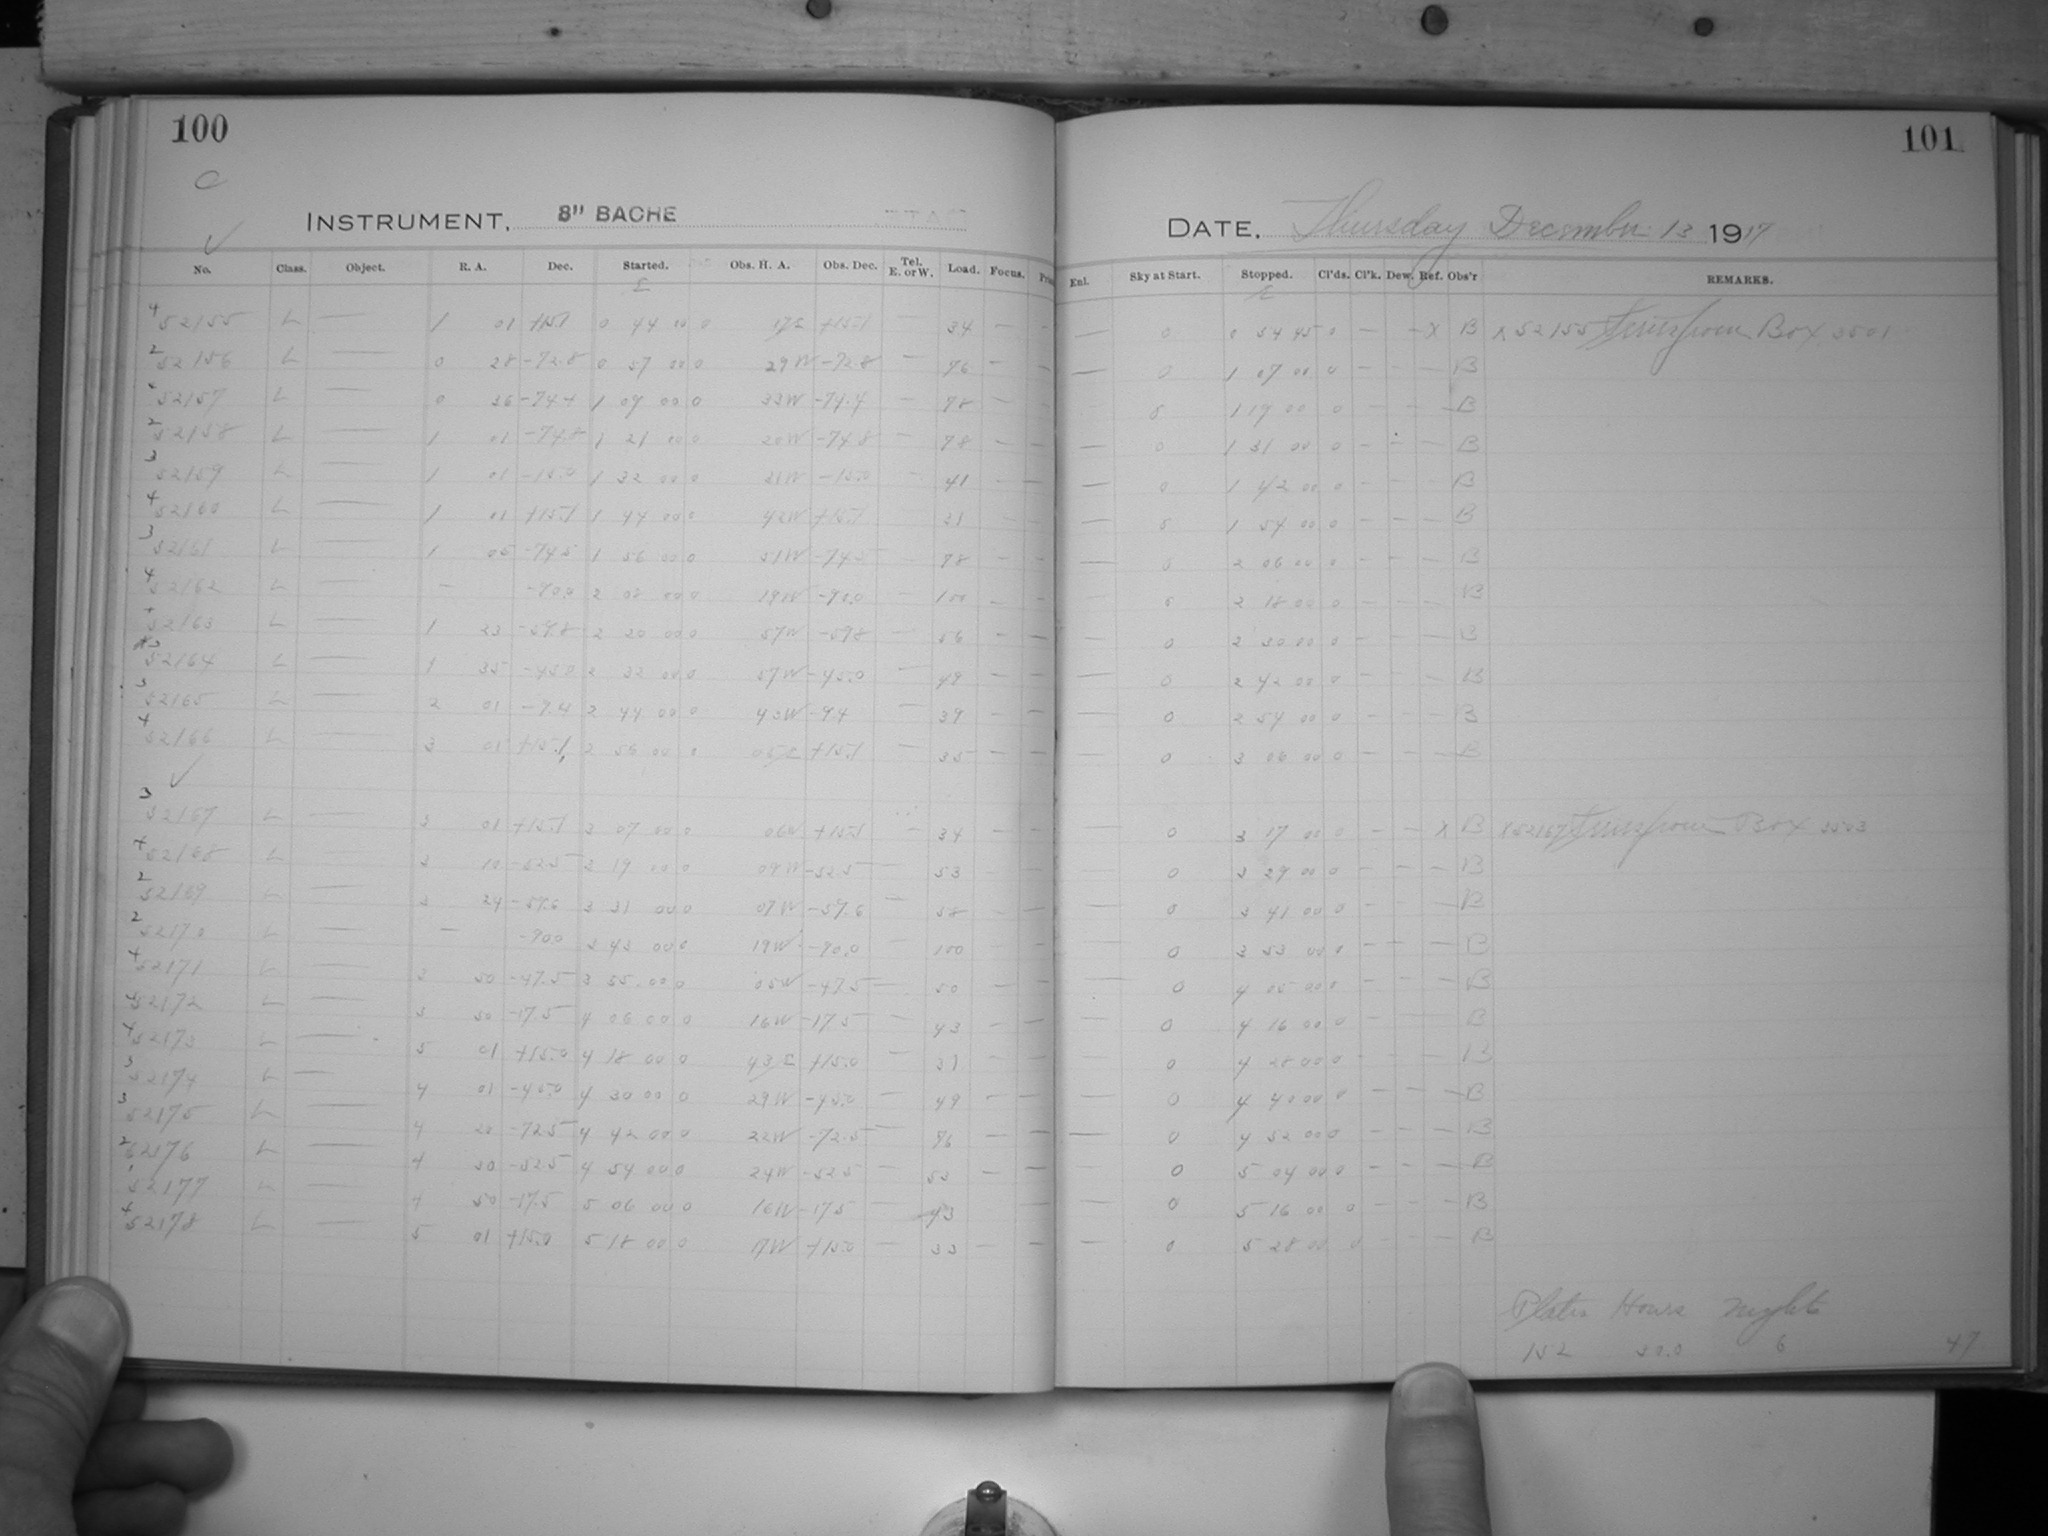 100
101
C
INSTRUMENT, 8" BACHE
DATE. Thursday December 13 1917
No. Class. Object. R. A. Dec. Started. Obs. H. A. Obs. Dec. Tel. E. or W. Load. Focus. Enl. Sky at Start. Stopped. Cl'ds. Cl'k. Dew. Ref. Obs'r REMARKS.
4 52155 L — 1 01 +15.1 0 44 00 0 17E +15.1 — 34 — — — 0 0 54 45 0 — — X B X 52155 Series from Box 3501
2 52156 L — 0 28 -72.8 0 57 00 0 29W -72.8 — 76 — — — 0 1 07 00 0 — — — B
52157 L — 0 36 -74.4 1 09 00 0 33W -74.4 — 78 — — — 0 1 19 00 0 — — — B
2 52158 L — 1 01 -74.8 1 21 00 0 20W -74.8 — 78 — — — 0 1 31 00 0 — — — B
3 52159 L — 1 01 -15.0 1 32 00 0 31W -15.0 — 41 — — — 0 1 42 00 0 — — — B
4 52160 L — 1 01 +15.1 1 44 00 0 42W +15.1 — 31 — — — 0 1 54 00 0 — — — B
3 52161 L — 1 05 -74.5 1 56 00 0 51W -74.5 — 78 — — — 0 2 06 00 0 — — — B
4 52162 L — — -90.0 2 08 00 0 19W -90.0 — 100 — — — 0 2 18 00 0 — — — B
52163 L — 1 23 -59.8 2 20 00 0 57W -59.8 — 56 — — — 0 2 30 00 0 — — — B
3 52164 L — 1 35 -45.0 2 32 00 0 57W -45.0 — 49 — — — 0 2 42 00 0 — — — B
3 52165 L — 2 01 -9.4 2 44 00 0 43W -9.4 — 39 — — — 0 2 54 00 0 — — — B
4 52166 L — 3 01 +15.1 2 56 00 0 05E +15.1 — 35 — — — 0 3 06 00 0 — — — B
3 52167 L — 3 01 +15.1 3 07 00 0 06W +15.1 — 34 — — — 0 3 17 00 0 — — X B X 52167 Series from Box 3503
4 52168 L — 3 10 -52.5 3 19 00 0 09W -52.5 — 53 — — — 0 3 29 00 0 — — — B
2 52169 L — 3 24 -59.6 3 31 00 0 07W -59.6 — 58 — — — 0 3 41 00 0 — — — B
2 52170 L — — -90.0 3 43 00 0 19W -90.0 — 100 — — — 0 3 53 00 0 — — — B
4 52171 L — 3 50 -47.5 3 55 00 0 05W -47.5 — 50 — — — 0 4 05 00 0 — — — B
52172 L — 3 50 -17.5 4 06 00 0 16W -17.5 — 43 — — — 0 4 16 00 0 — — — B
4 52173 L — 5 01 +15.0 4 18 00 0 43E +15.0 — 31 — — — 0 4 28 00 0 — — — B
3 52174 L — 4 01 -45.0 4 30 00 0 29W -45.0 — 49 — — — 0 4 40 00 0 — — — B
3 52175 L — 4 20 -72.5 4 42 00 0 22W -72.5 — 76 — — — 0 4 52 00 0 — — — B
2 52176 L — 4 30 -52.5 4 54 00 0 24W -52.5 — 53 — — — 0 5 04 00 0 — — — B
52177 L — 4 50 -17.5 5 06 00 0 16W -17.5 — 43 — 0 5 16 00 0 — — — B
4 52178 L — 5 01 +15.0 5 18 00 0 17W +15.0 — 33 — — — 0 5 28 00 0 — — — B
Plates Hours Nights
152 6 47